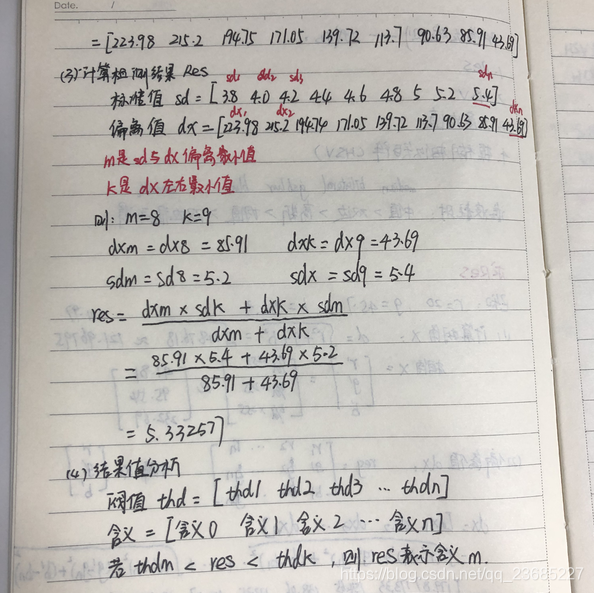 Date. /
= [223.98 215.2 194.75 171.05 139.72 113.7 90.63 85.91 43.69]
(3) 计算相似结果 Res
sd1 sd2 sd3 sdn
标准值 sd = [3.8 4.0 4.2 4.4 4.6 4.8 5 5.2 5.4]
dx1 dx2 dxn
偏离值 dx = [223.98 215.2 194.74 171.05 139.72 113.7 90.63 85.91 43.69]
m是sd与dx偏离最小值
k是dx左右最小值
则: m=8 k=9
dxm = dx8 = 85.91 dxk = dx9 = 43.69
sdm = sd8 = 5.2 sdx = sd9 = 5.4
res = dxm × sdk + dxk × sdm
dxm + dxk
= 85.91 × 5.4 + 43.69 × 5.2
85.91 + 43.69
= 5.332571
(4) 结果值分析
阈值 thd = [thd1 thd2 thd3 … thdn]
含义 = [含义0 含义1 含义2 … 含义n]
若 thdm < res < thdk, 则 res表示含义m.
https://blog.csdn.net/qq_23685227